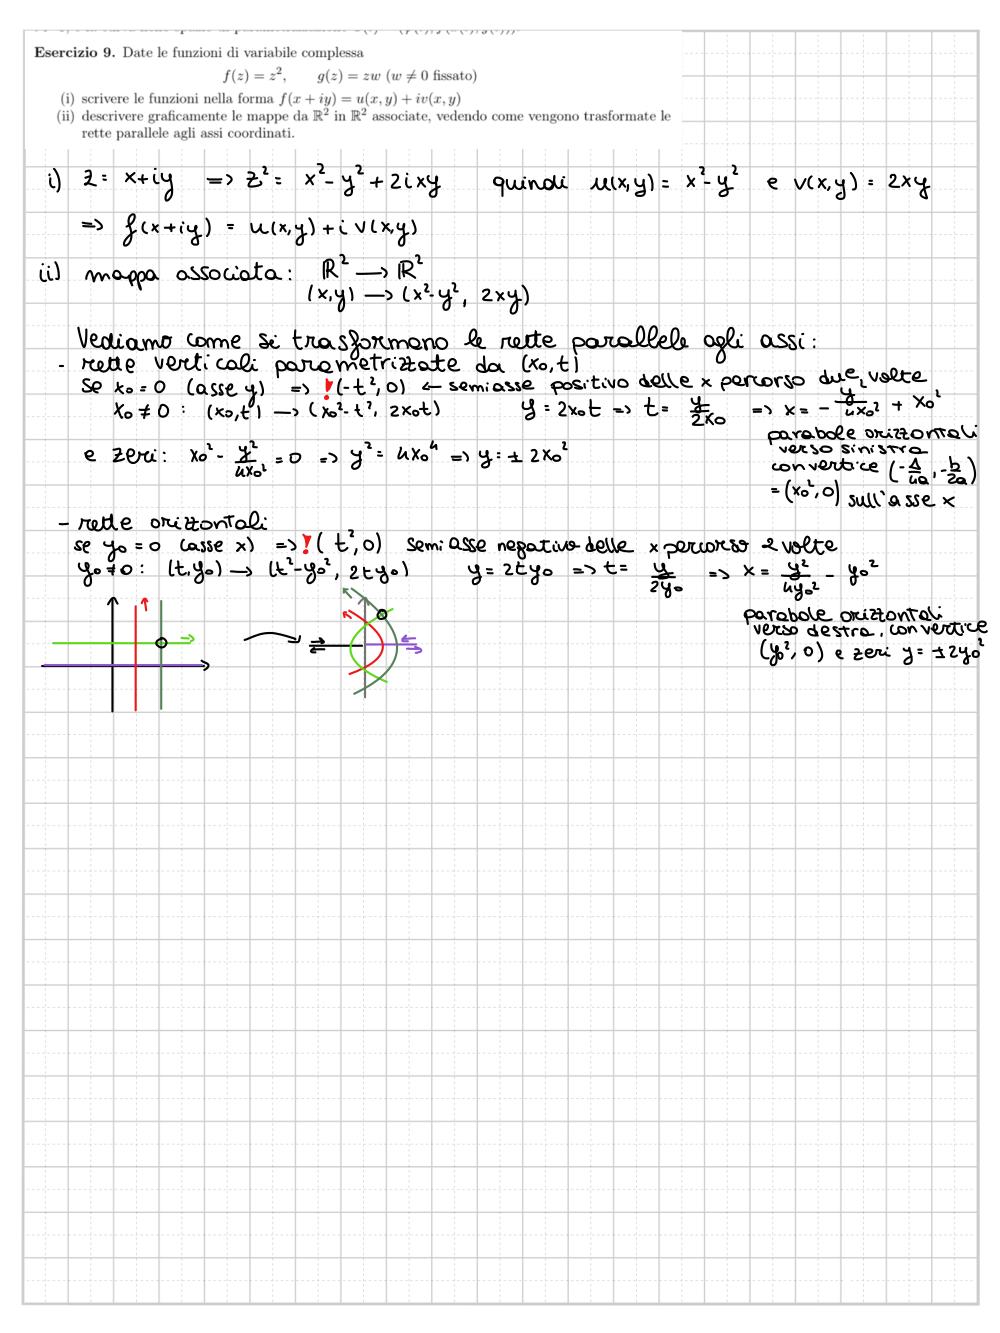 Esercizio 9. Date le funzioni di variabile complessa
f(z) = z², g(z) = zw (w ≠ 0 fissato)
(i) scrivere le funzioni nella forma f(x + iy) = u(x, y) + iv(x, y)
(ii) descrivere graficamente le mappe da ℝ² in ℝ² associate, vedendo come vengono trasformate le
rette parallele agli assi coordinati.
i) z = x+iy => z² = x²-y²+2ixy quindi u(x,y) = x²-y² e v(x,y) = 2xy
=> f(x+iy) = u(x,y)+i v(x,y)
ii) mappa associata: ℝ² → ℝ²
(x,y) → (x²-y², 2xy)
Vediamo come si trasformano le rette parallele agli assi:
- rette verticali parametrizzate da (x₀,t)
se x₀ = 0 (asse y) => ! (-t², 0) ← semiasse positivo delle x percorso due volte
x₀ ≠ 0 : (x₀,t) → (x₀²-t², 2x₀t) y = 2x₀t => t = y/2x₀ => x = - y²/4x₀² + x₀²
parabole orizzontali
verso sinistra
con vertice (-Δ/4a, -b/2a)
= (x₀², 0) sull'asse x
e zeri: x₀² - y²/4x₀² = 0 => y² = 4x₀⁴ => y = ± 2x₀²
- rette orizzontali
se y₀ = 0 (asse x) => ! (t², 0) semiasse negativo delle x percorso 2 volte
y₀ ≠ 0: (t,y₀) → (t²-y₀², 2ty₀) y = 2ty₀ => t = y/2y₀ => x = y²/4y₀² - y₀²
parabole orizzontali
verso destra, con vertice
(y₀², 0) e zeri y = ±2y₀²